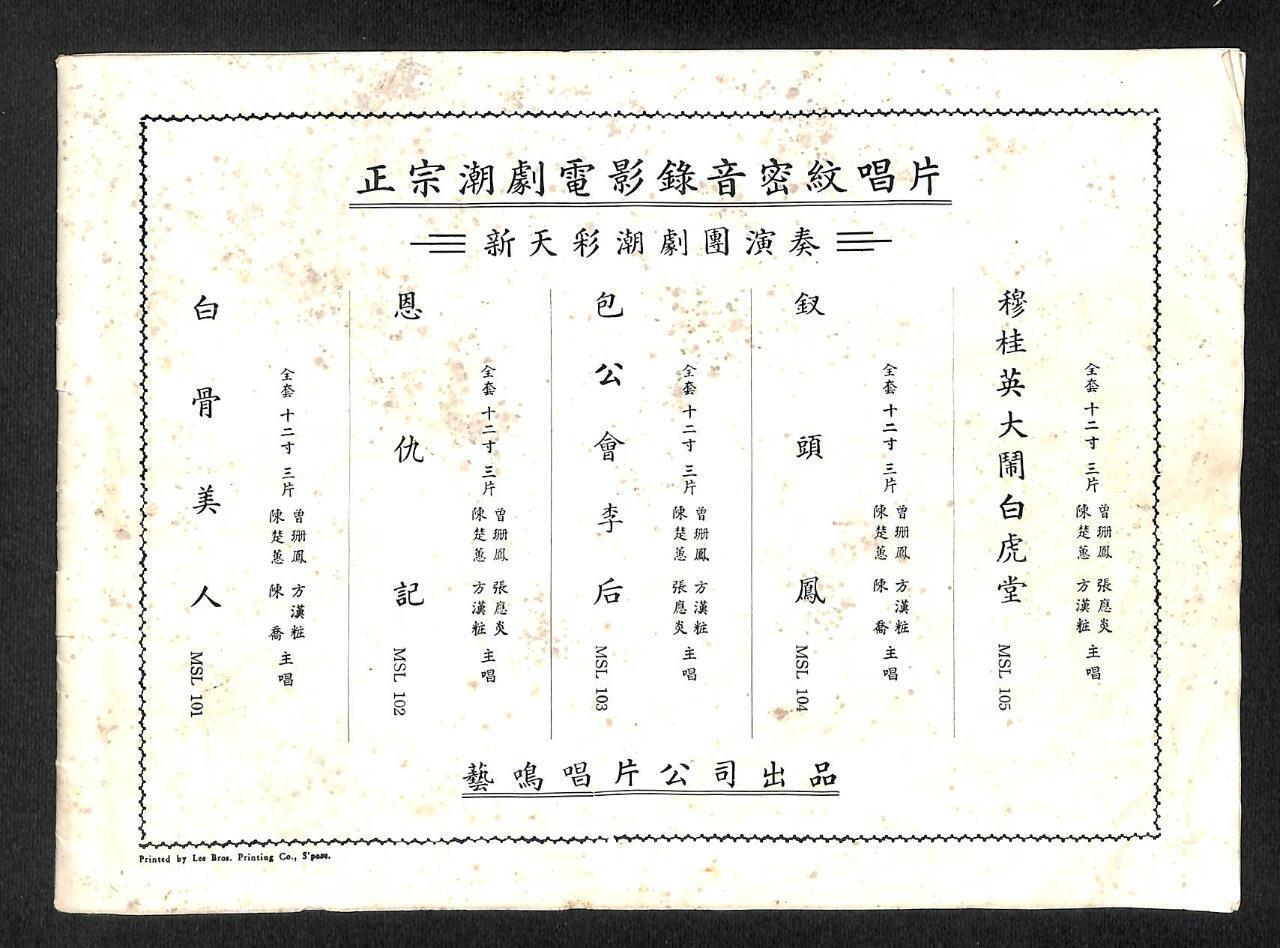 正宗潮劇電影錄音密紋唱片
新天彩潮劇團演奏
白骨美人 MSL 101
全套 十二寸 三片 曾珊鳳 陳楚蕙 方漢粧 陳喬 主唱
恩仇記 MSL 102
全套 十二寸 三片 曾珊鳳 陳楚蕙 張應炎 方漢粧 主唱
包公會李后 MSL 103
全套 十二寸 三片 曾珊鳳 陳楚蕙 方漢粧 張應炎 主唱
釵頭鳳 MSL 104
全套 十二寸 三片 曾珊鳳 陳楚蕙 方漢粧 陳喬 主唱
穆桂英大鬧白虎堂 MSL 105
全套 十二寸 三片 曾珊鳳 陳楚蕙 張應炎 方漢粧 主唱
藝鳴唱片公司出品
Printed by Lee Bros. Printing Co., S'pore.